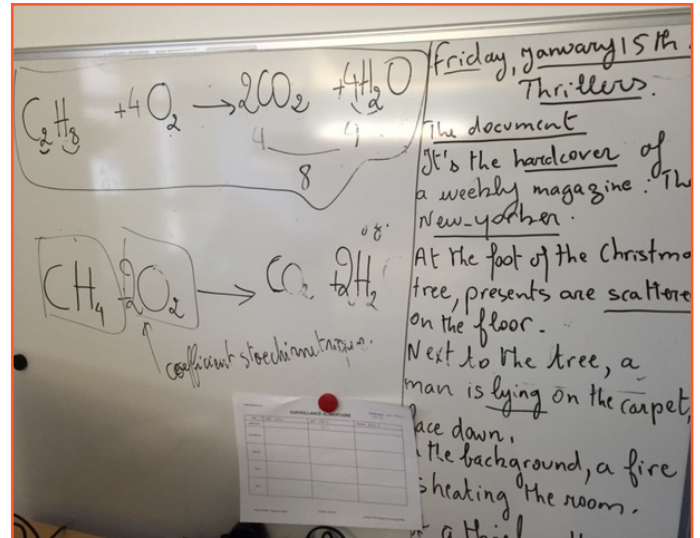 C₂H₈ +4O₂ → 2CO₂ +4H₂O
4 4
8
CH₄ +2O₂ → CO₂ +2H₂
coefficient stoechiometrique.
SURVEILLANCE ALIMENTAIRE
Friday, January 15th.
Thrillers.
The document
It's the hardcover of
a weekly magazine: Th
New-yorker.
At the foot of the Christma
tree, presents are scattere
on the floor.
Next to the tree, a
man is lying on the carpet,
face down.
the background, a fire
s heating the room.
a thief